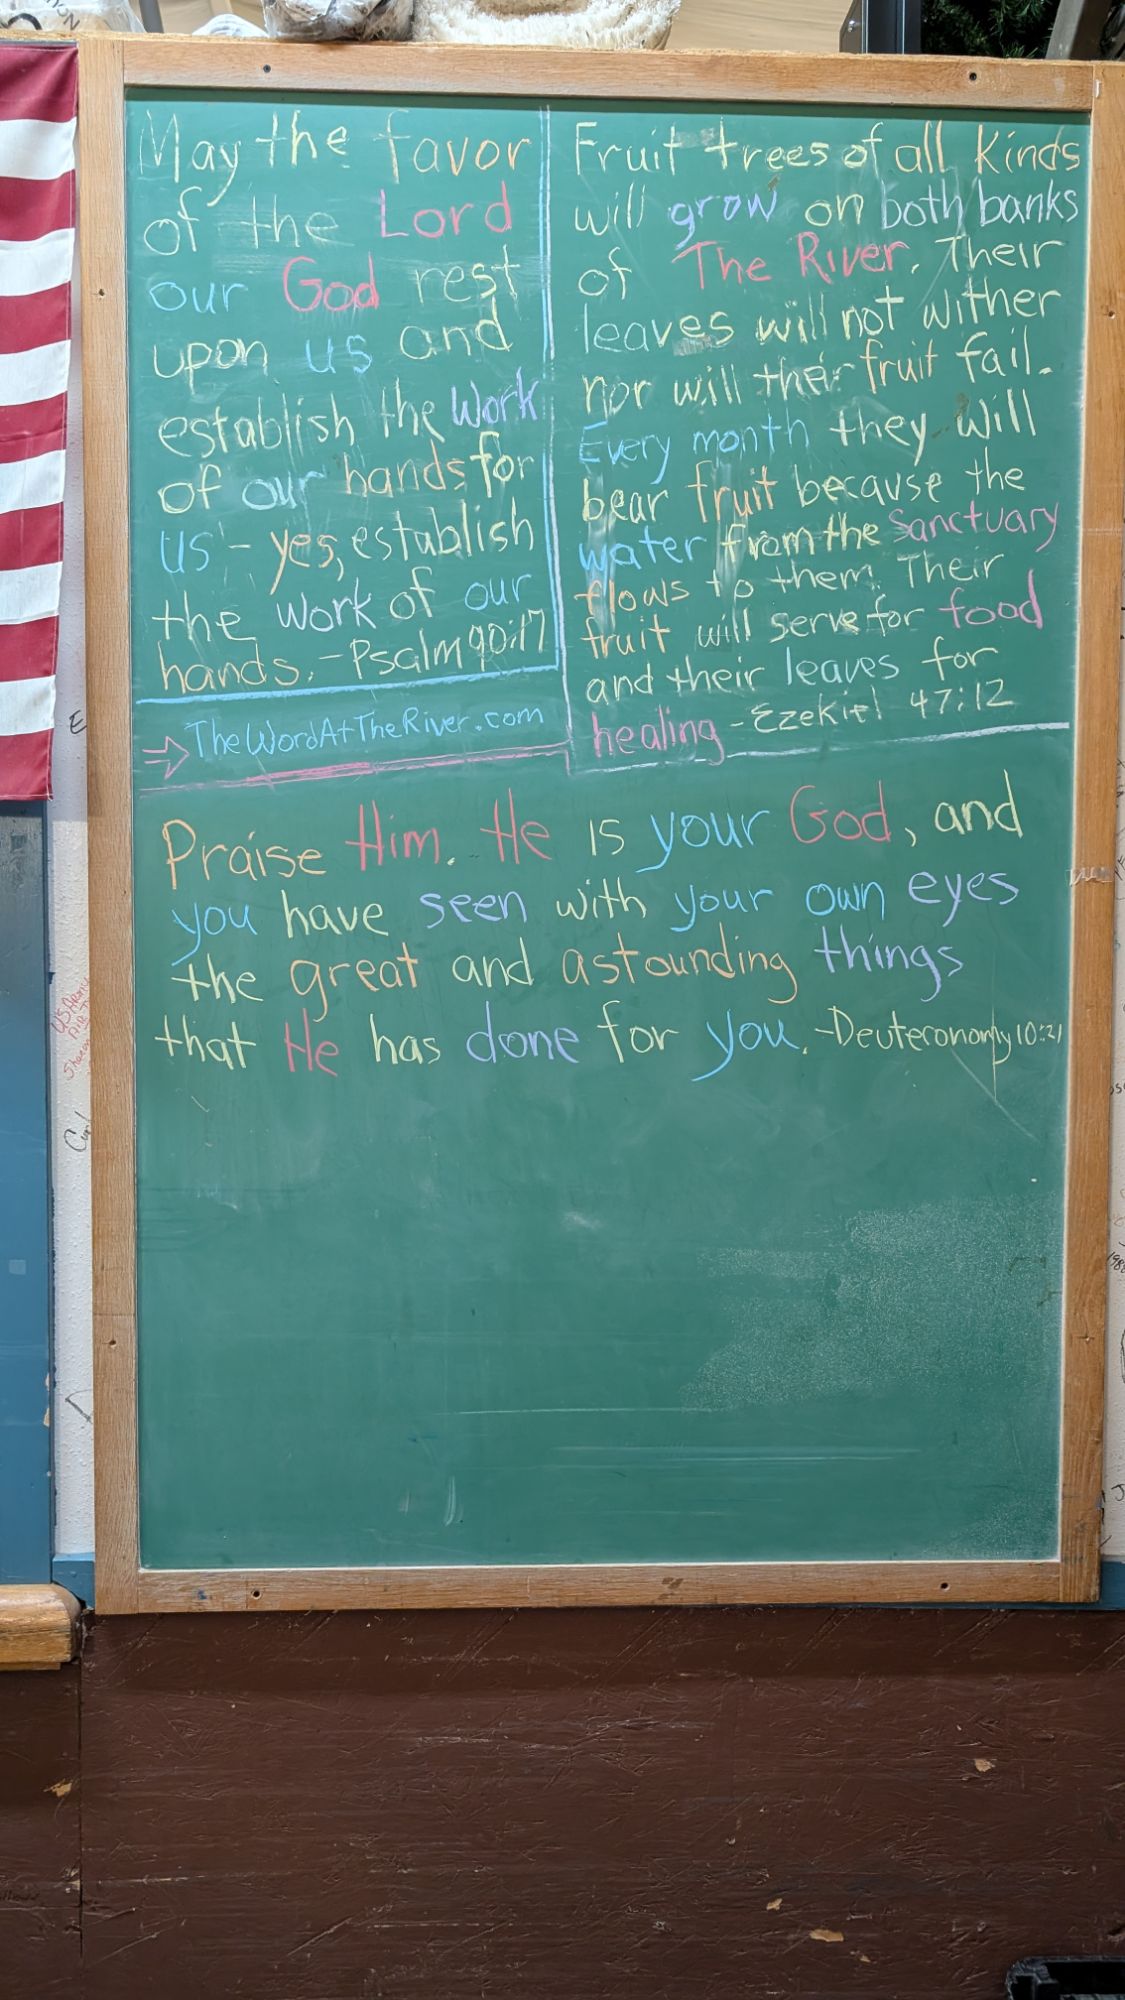 May the favor
of the Lord
our God rest
upon us and
establish the work
of our hands for
us - yes, establish
the work of our
hands. - Psalm 90:17
TheWordAtTheRiver.com
Fruit trees of all kinds
will grow on both banks
of The River. Their
leaves will not wither
nor will their fruit fail.
Every month they will
bear fruit because the
water from the Sanctuary
flows to them. Their
fruit will serve for food
and their leaves for
healing - Ezekiel 47:12
Praise Him. He is your God, and
you have seen with your own eyes
the great and astounding things
that He has done for you. - Deuteronomy 10:21